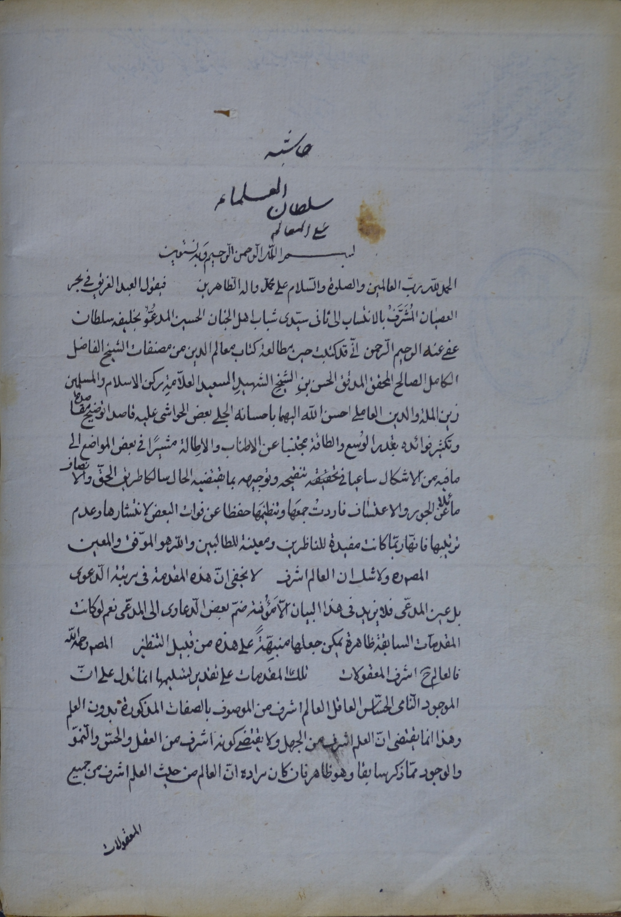 حاشیه
سلطان العلماء
على المعالم
بسم الله الرحمن الرحيم وبه نستعين
الحمد لله رب العالمين والصلوة والسلام على محمد واله الطاهرين فيقول العبد الغريق في بحر
العصيان المشرف بالانتساب الى ثانى سيدى شباب اهل الجنان الحسين المدعو بخليفه سلطان
عفى عنه الرحيم الرحمن انى قد كنت حين مطالعة كتاب معالم الدين من مصنفات الشيخ الفاضل
الكامل الصالح المحقق المدقق الحسن بن الشيخ الشهيد السعيد العلامة ركن الاسلام والمسلمين
زين الملة والدين العاملى احسن الله اليهما باحسانه الجلى بعض الحواشى عليه قاصدا توضيح مقاصده
وتكثير فوائده بقدر الوسع والطاقة مجتنبا عن الاطناب والاطالة مشيرا في بعض المواضع الى
ما فيه من الاشكال ساعيا في تحقيقه تنقيحه وتوجيهه بما يقتضيه الحال سالكا طريق الحق والانصاف
مائلا عن الجور والاعتساف فاردت جمعها وتنظيمها حفظا عن فوات البعض لانتشارها وعدم
ترتيبها فانها ربما كانت مفيدة للناظرين ومعينة للطالبين والله هو الموفق والمعين
المص ره ولا شك ان العالم اشرف لا يخفى ان هذه المقدمة في مرتبة الدعوى
بل عين المدعى فلا بد في هذا البيان الا مؤنة ضم بعض الدعاوى الى المدعى نعم لو كانت
المقدمات السابقة ظاهرة يمكن جعلها منبهة على هذه من قبيل التنظير المص رحمه الله
فالعالم ح اشرف المعقولات تلك المقدمات على تقدير تسليمها انما تدل على ان
الموجود النامى الحساس العاقل العالم اشرف من الموصوف بالصفات المذكورة بدون العلم
وهذا انما يقتضى ان العلم اشرف من الجهل ولا يقتضى كونه اشرف من العقل والحس والنمو
والوجود مما ذكر سابقا وهو ظاهر فان كان مراده ان العالم من حيث العلم اشرف من جميع
المعقولات